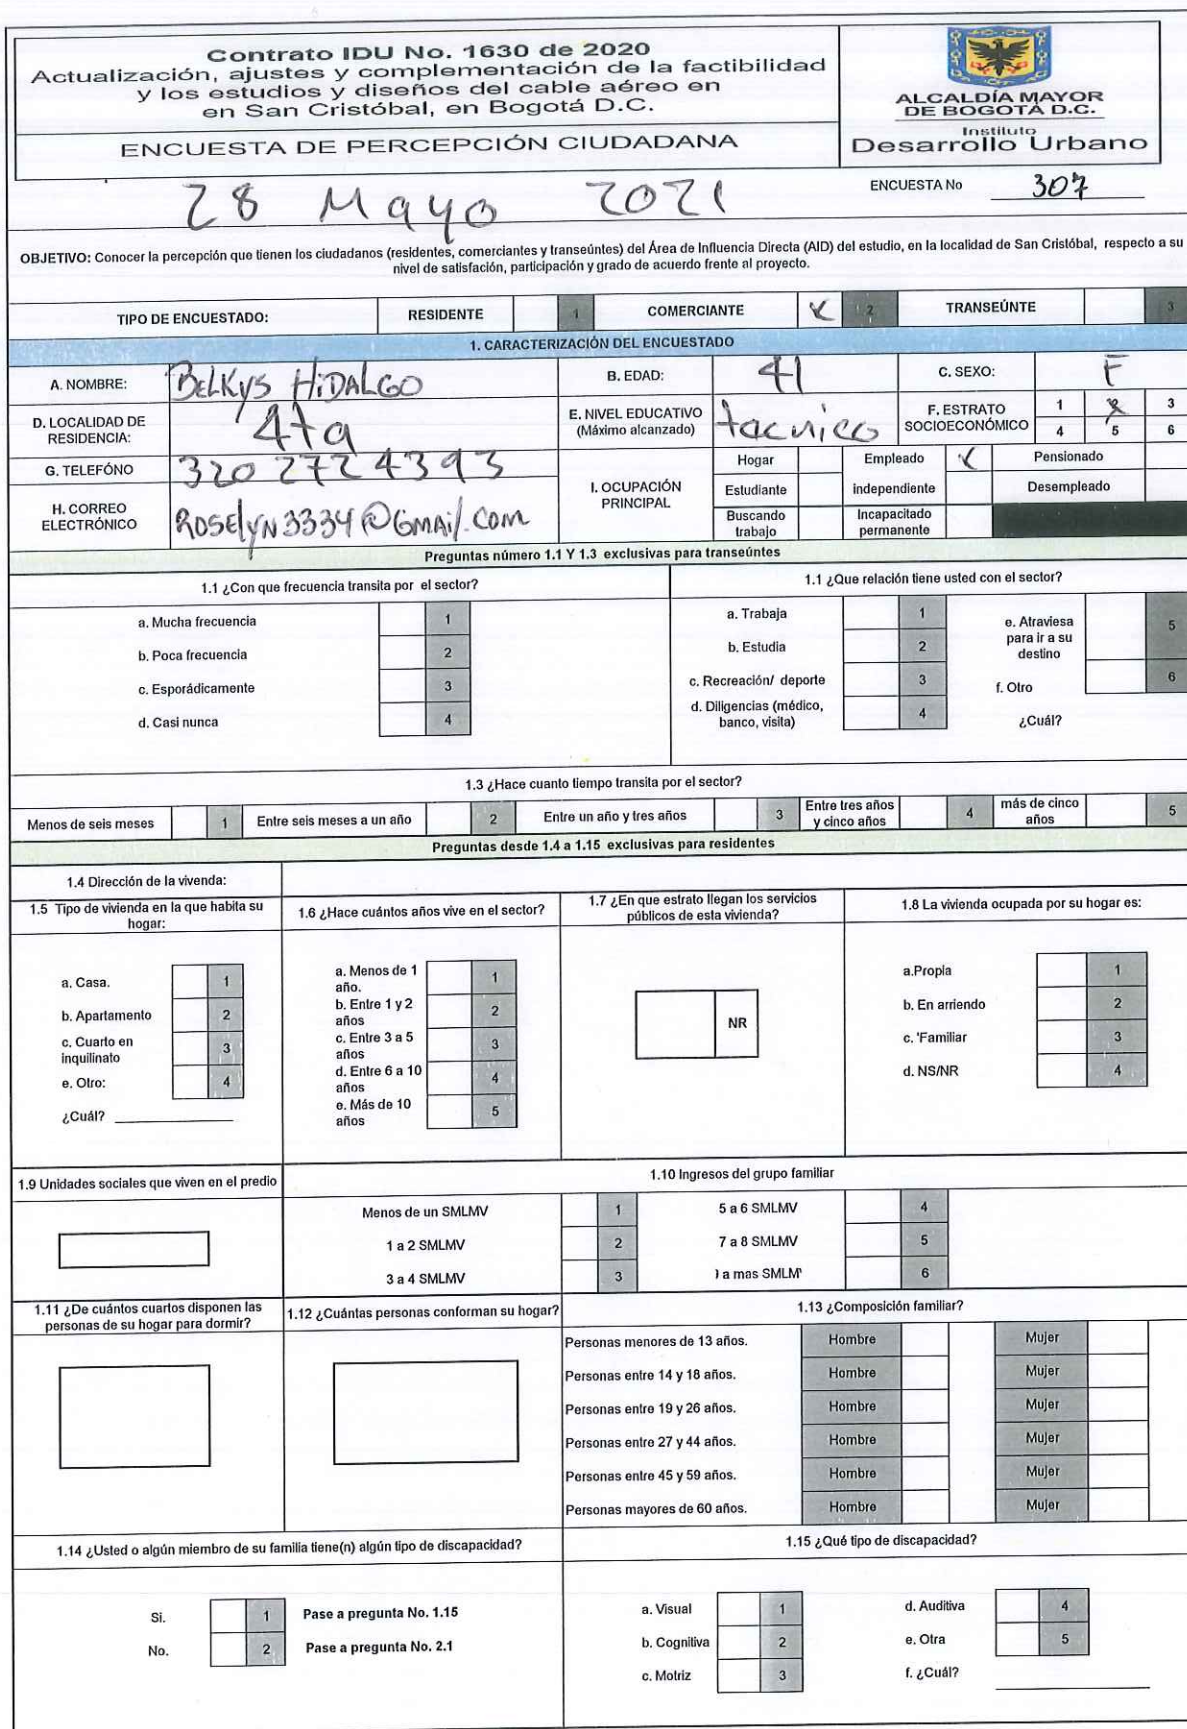 Contrato IDU No. 1630 de 2020
Actualización, ajustes y complementación de la factibilidad
y los estudios y diseños del cable aéreo en
en San Cristóbal, en Bogotá D.C.
ENCUESTA DE PERCEPCIÓN CIUDADANA
ALCALDÍA MAYOR
DE BOGOTÁ D.C.
Instituto
Desarrollo Urbano
28 Mayo 2021
ENCUESTA No 307
OBJETIVO: Conocer la percepción que tienen los ciudadanos (residentes, comerciantes y transeúntes) del Área de Influencia Directa (AID) del estudio, en la localidad de San Cristóbal, respecto a su
nivel de satisfacción, participación y grado de acuerdo frente al proyecto.
TIPO DE ENCUESTADO: RESIDENTE 1 COMERCIANTE X 2 TRANSEÚNTE 3
1. CARACTERIZACIÓN DEL ENCUESTADO
A. NOMBRE: BELKYS HIDALGO B. EDAD: 41 C. SEXO: F
D. LOCALIDAD DE
RESIDENCIA: 4ta
E. NIVEL EDUCATIVO
(Máximo alcanzado) tacnico
F. ESTRATO
SOCIOECONÓMICO
1 X 3
4 5 6
G. TELEFÓNO 320 2724393
H. CORREO
ELECTRÓNICO
ROSElyN3334@GMAil.COM
I. OCUPACIÓN
PRINCIPAL
Hogar Empleado X Pensionado
Estudiante independiente Desempleado
Buscando
trabajo
Incapacitado
permanente
Preguntas número 1.1 Y 1.3 exclusivas para transeúntes
1.1 ¿Con que frecuencia transita por el sector?
a. Mucha frecuencia 1
b. Poca frecuencia 2
c. Esporádicamente 3
d. Casi nunca 4
1.1 ¿Que relación tiene usted con el sector?
a. Trabaja 1
b. Estudia 2
c. Recreación/ deporte 3
d. Diligencias (médico,
banco, visita) 4
e. Atraviesa
para ir a su
destino 5
f. Otro 6
¿Cuál?
1.3 ¿Hace cuanto tiempo transita por el sector?
Menos de seis meses 1 Entre seis meses a un año 2 Entre un año y tres años 3 Entre tres años
y cinco años 4 más de cinco
años 5
Preguntas desde 1.4 a 1.15 exclusivas para residentes
1.4 Dirección de la vivenda:
1.5 Tipo de vivienda en la que habita su
hogar:
a. Casa. 1
b. Apartamento 2
c. Cuarto en
inquilinato 3
e. Otro: 4
¿Cuál?
1.6 ¿Hace cuántos años vive en el sector?
a. Menos de 1
año. 1
b. Entre 1 y 2
años 2
c. Entre 3 a 5
años 3
d. Entre 6 a 10
años 4
e. Más de 10
años 5
1.7 ¿En que estrato llegan los servicios
públicos de esta vivienda?
NR
1.8 La vivienda ocupada por su hogar es:
a.Propia 1
b. En arriendo 2
c. 'Familiar 3
d. NS/NR 4
1.9 Unidades sociales que viven en el predio
1.10 Ingresos del grupo familiar
Menos de un SMLMV 1 5 a 6 SMLMV 4
1 a 2 SMLMV 2 7 a 8 SMLMV 5
3 a 4 SMLMV 3 a mas SMLM 6
1.11 ¿De cuántos cuartos disponen las
personas de su hogar para dormir?
1.12 ¿Cuántas personas conforman su hogar?
1.13 ¿Composición familiar?
Personas menores de 13 años. Hombre Mujer
Personas entre 14 y 18 años. Hombre Mujer
Personas entre 19 y 26 años. Hombre Mujer
Personas entre 27 y 44 años. Hombre Mujer
Personas entre 45 y 59 años. Hombre Mujer
Personas mayores de 60 años. Hombre Mujer
1.14 ¿Usted o algún miembro de su familia tiene(n) algún tipo de discapacidad?
Si. 1 Pase a pregunta No. 1.15
No. 2 Pase a pregunta No. 2.1
1.15 ¿Qué tipo de discapacidad?
a. Visual 1 d. Auditiva 4
b. Cognitiva 2 e. Otra 5
c. Motriz 3 f. ¿Cuál?